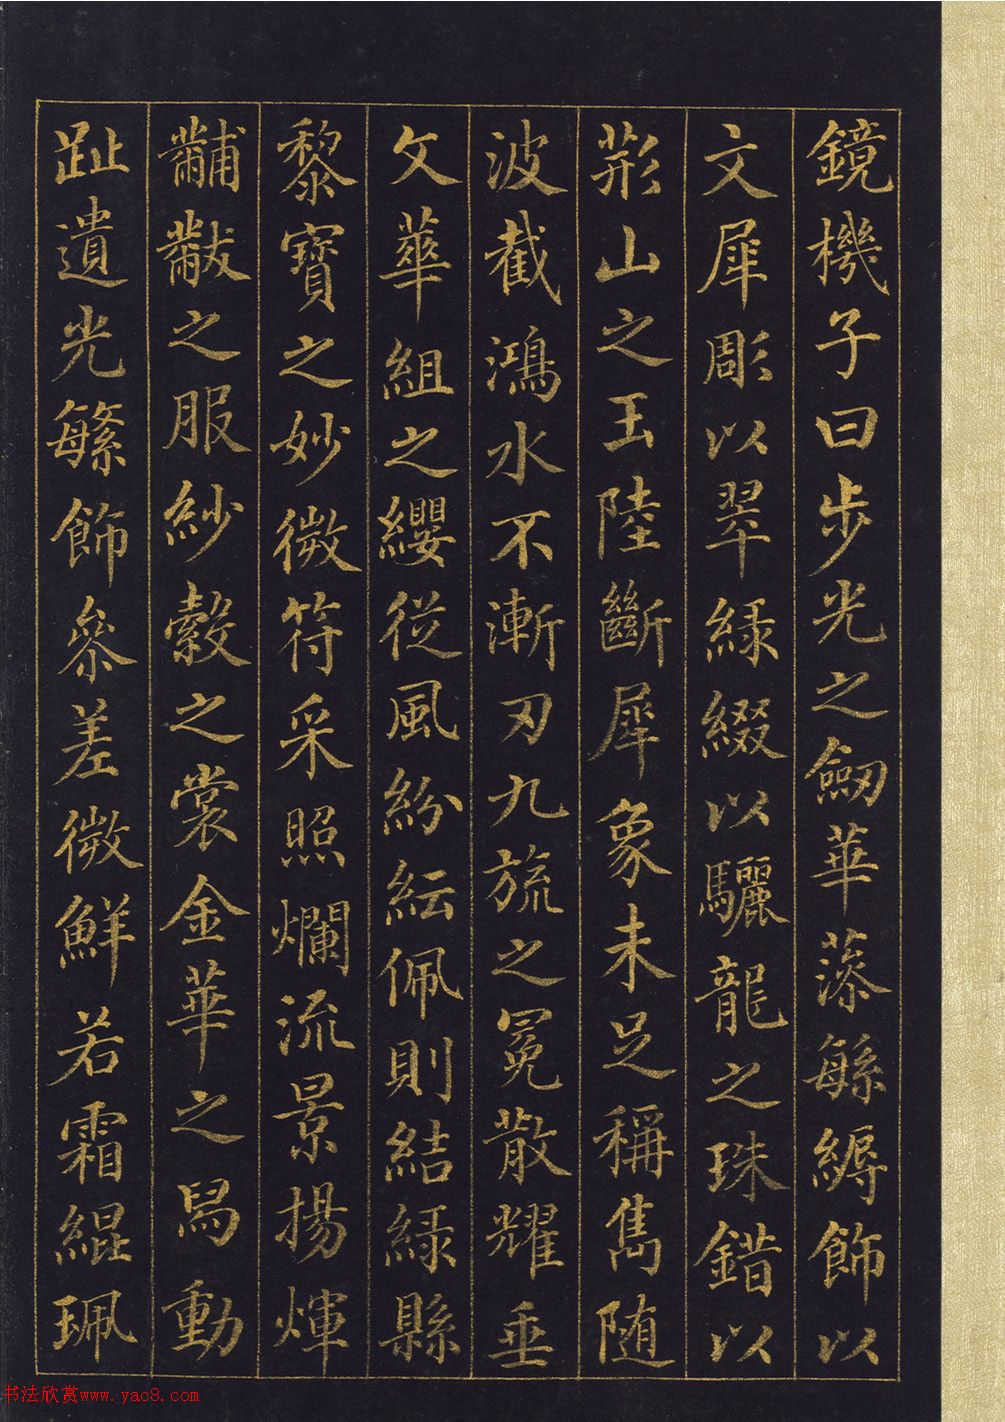 鏡機子曰步光之劒華藻繁縟飾以
文犀彫以翠綠綴以驪龍之珠錯以
荊山之玉陸斷犀象未足稱雋随
波截鴻水不漸刃九旒之冕散耀垂
文華組之纓從風紛紜佩則結綠縣
黎寶之妙微符采照爛流景揚煇
黼黻之服紗縠之裳金華之舄動
趾遺光繁飾參差微鮮若霜緄珮
书法欣赏www.yac8.com